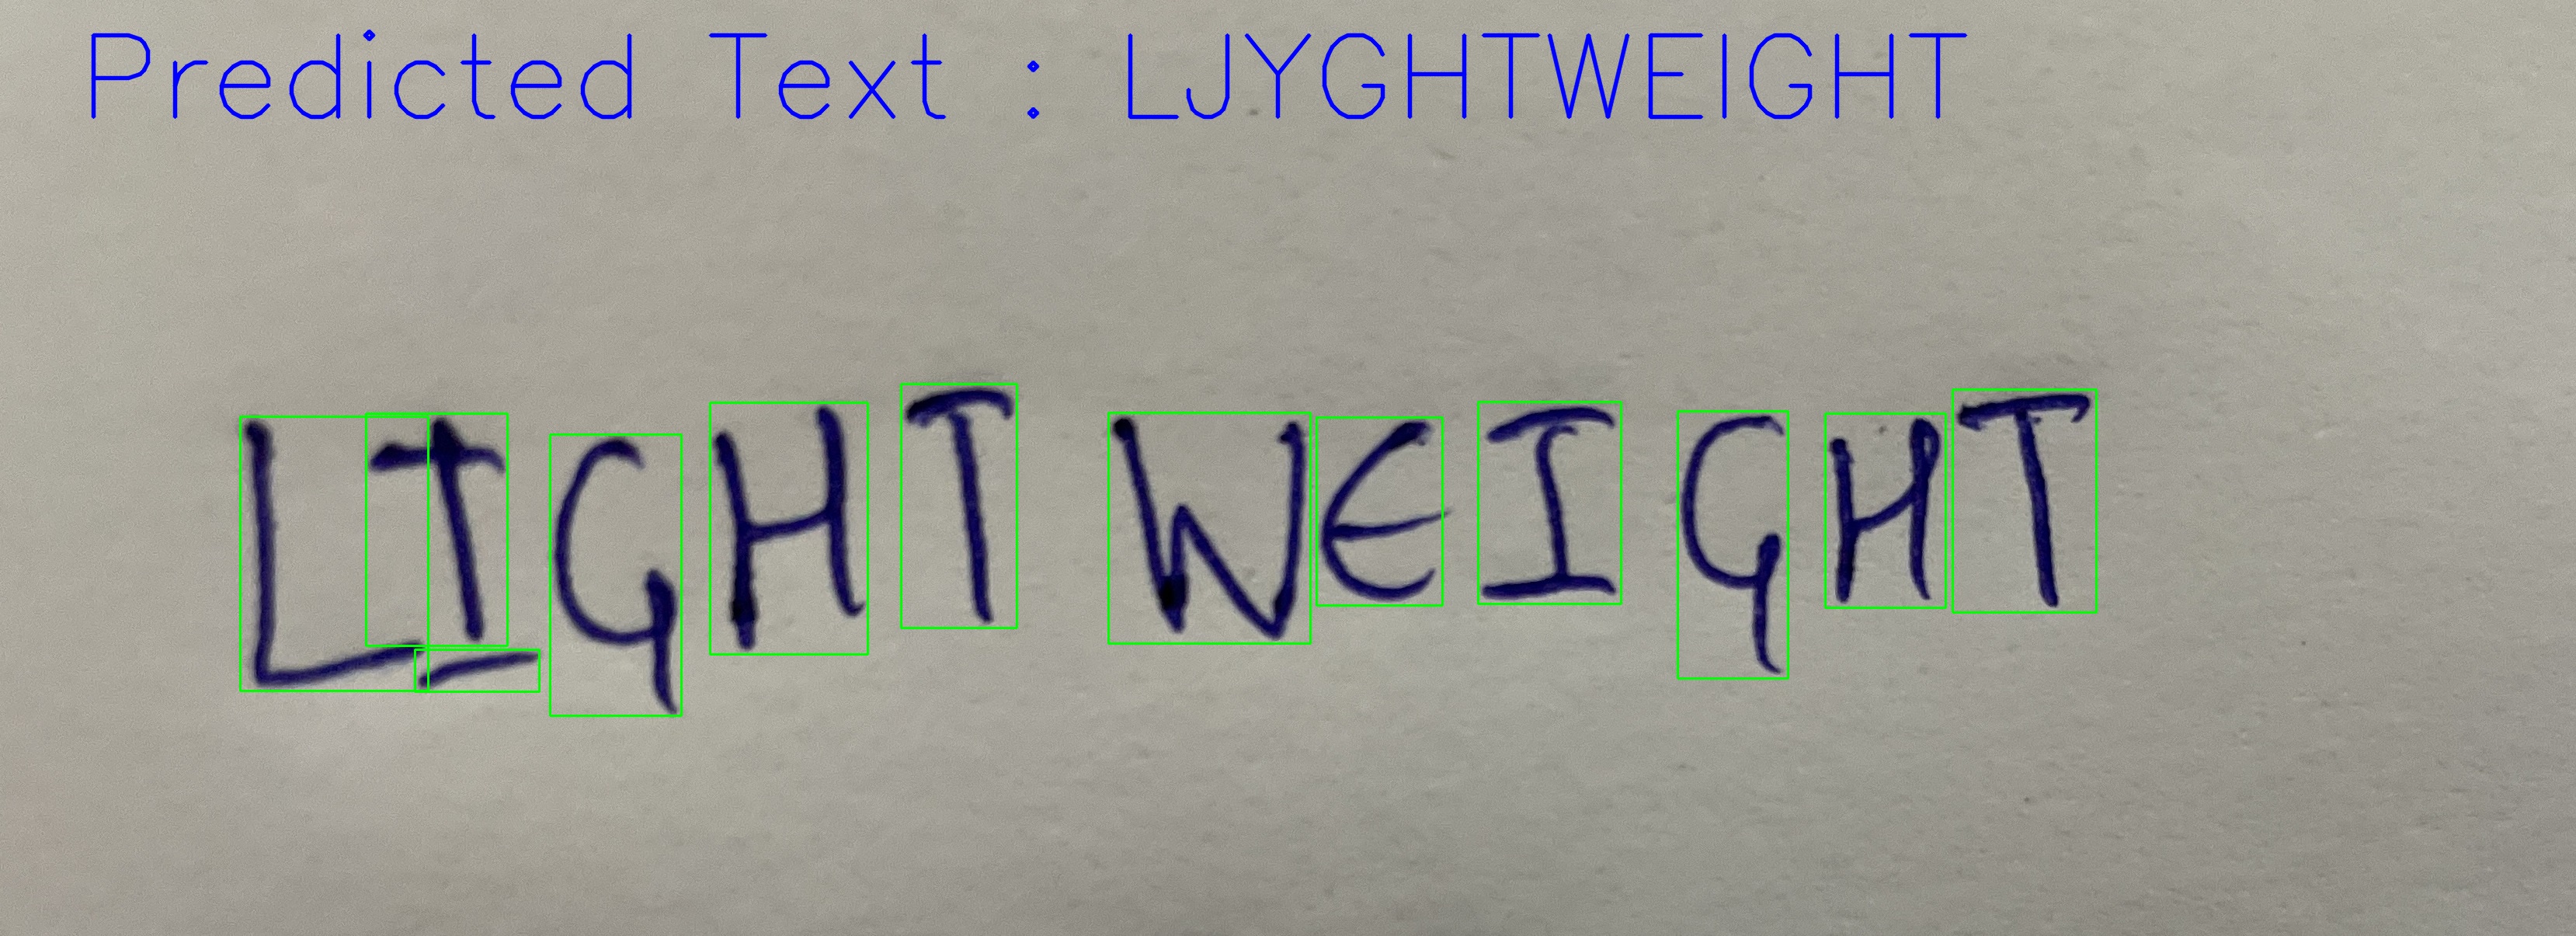 Predicted Text : LJYGHTWEIGHT
LIGHT WEIGHT